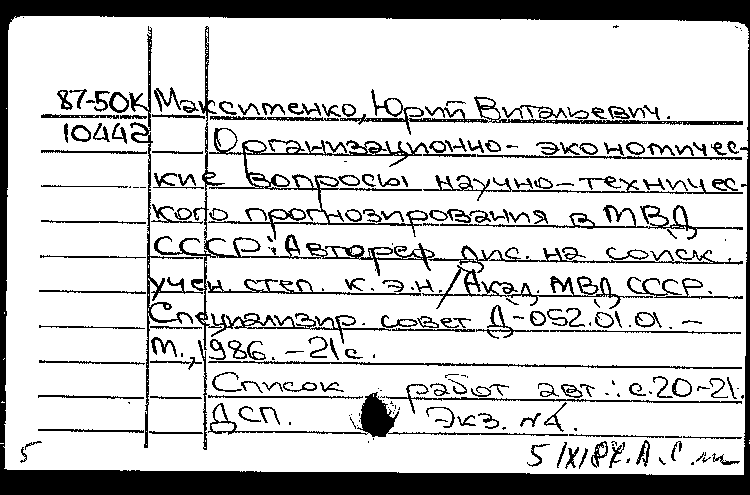 87-50К Максименко, Юрий Витальевич.
10442 Организационно-экономичес-
кие вопросы научно-техничес-
кого прогнозирования в МВД
СССР: Автореф дис. на соиск.
учен. степ. к.э.н./Акад. МВД СССР.
Специализир. совет Д-052.01.01. –
М., 1986. – 21с.
Список работ авт.: с.20-21.
ДСП. Экз. №4.
5 5/XI87.